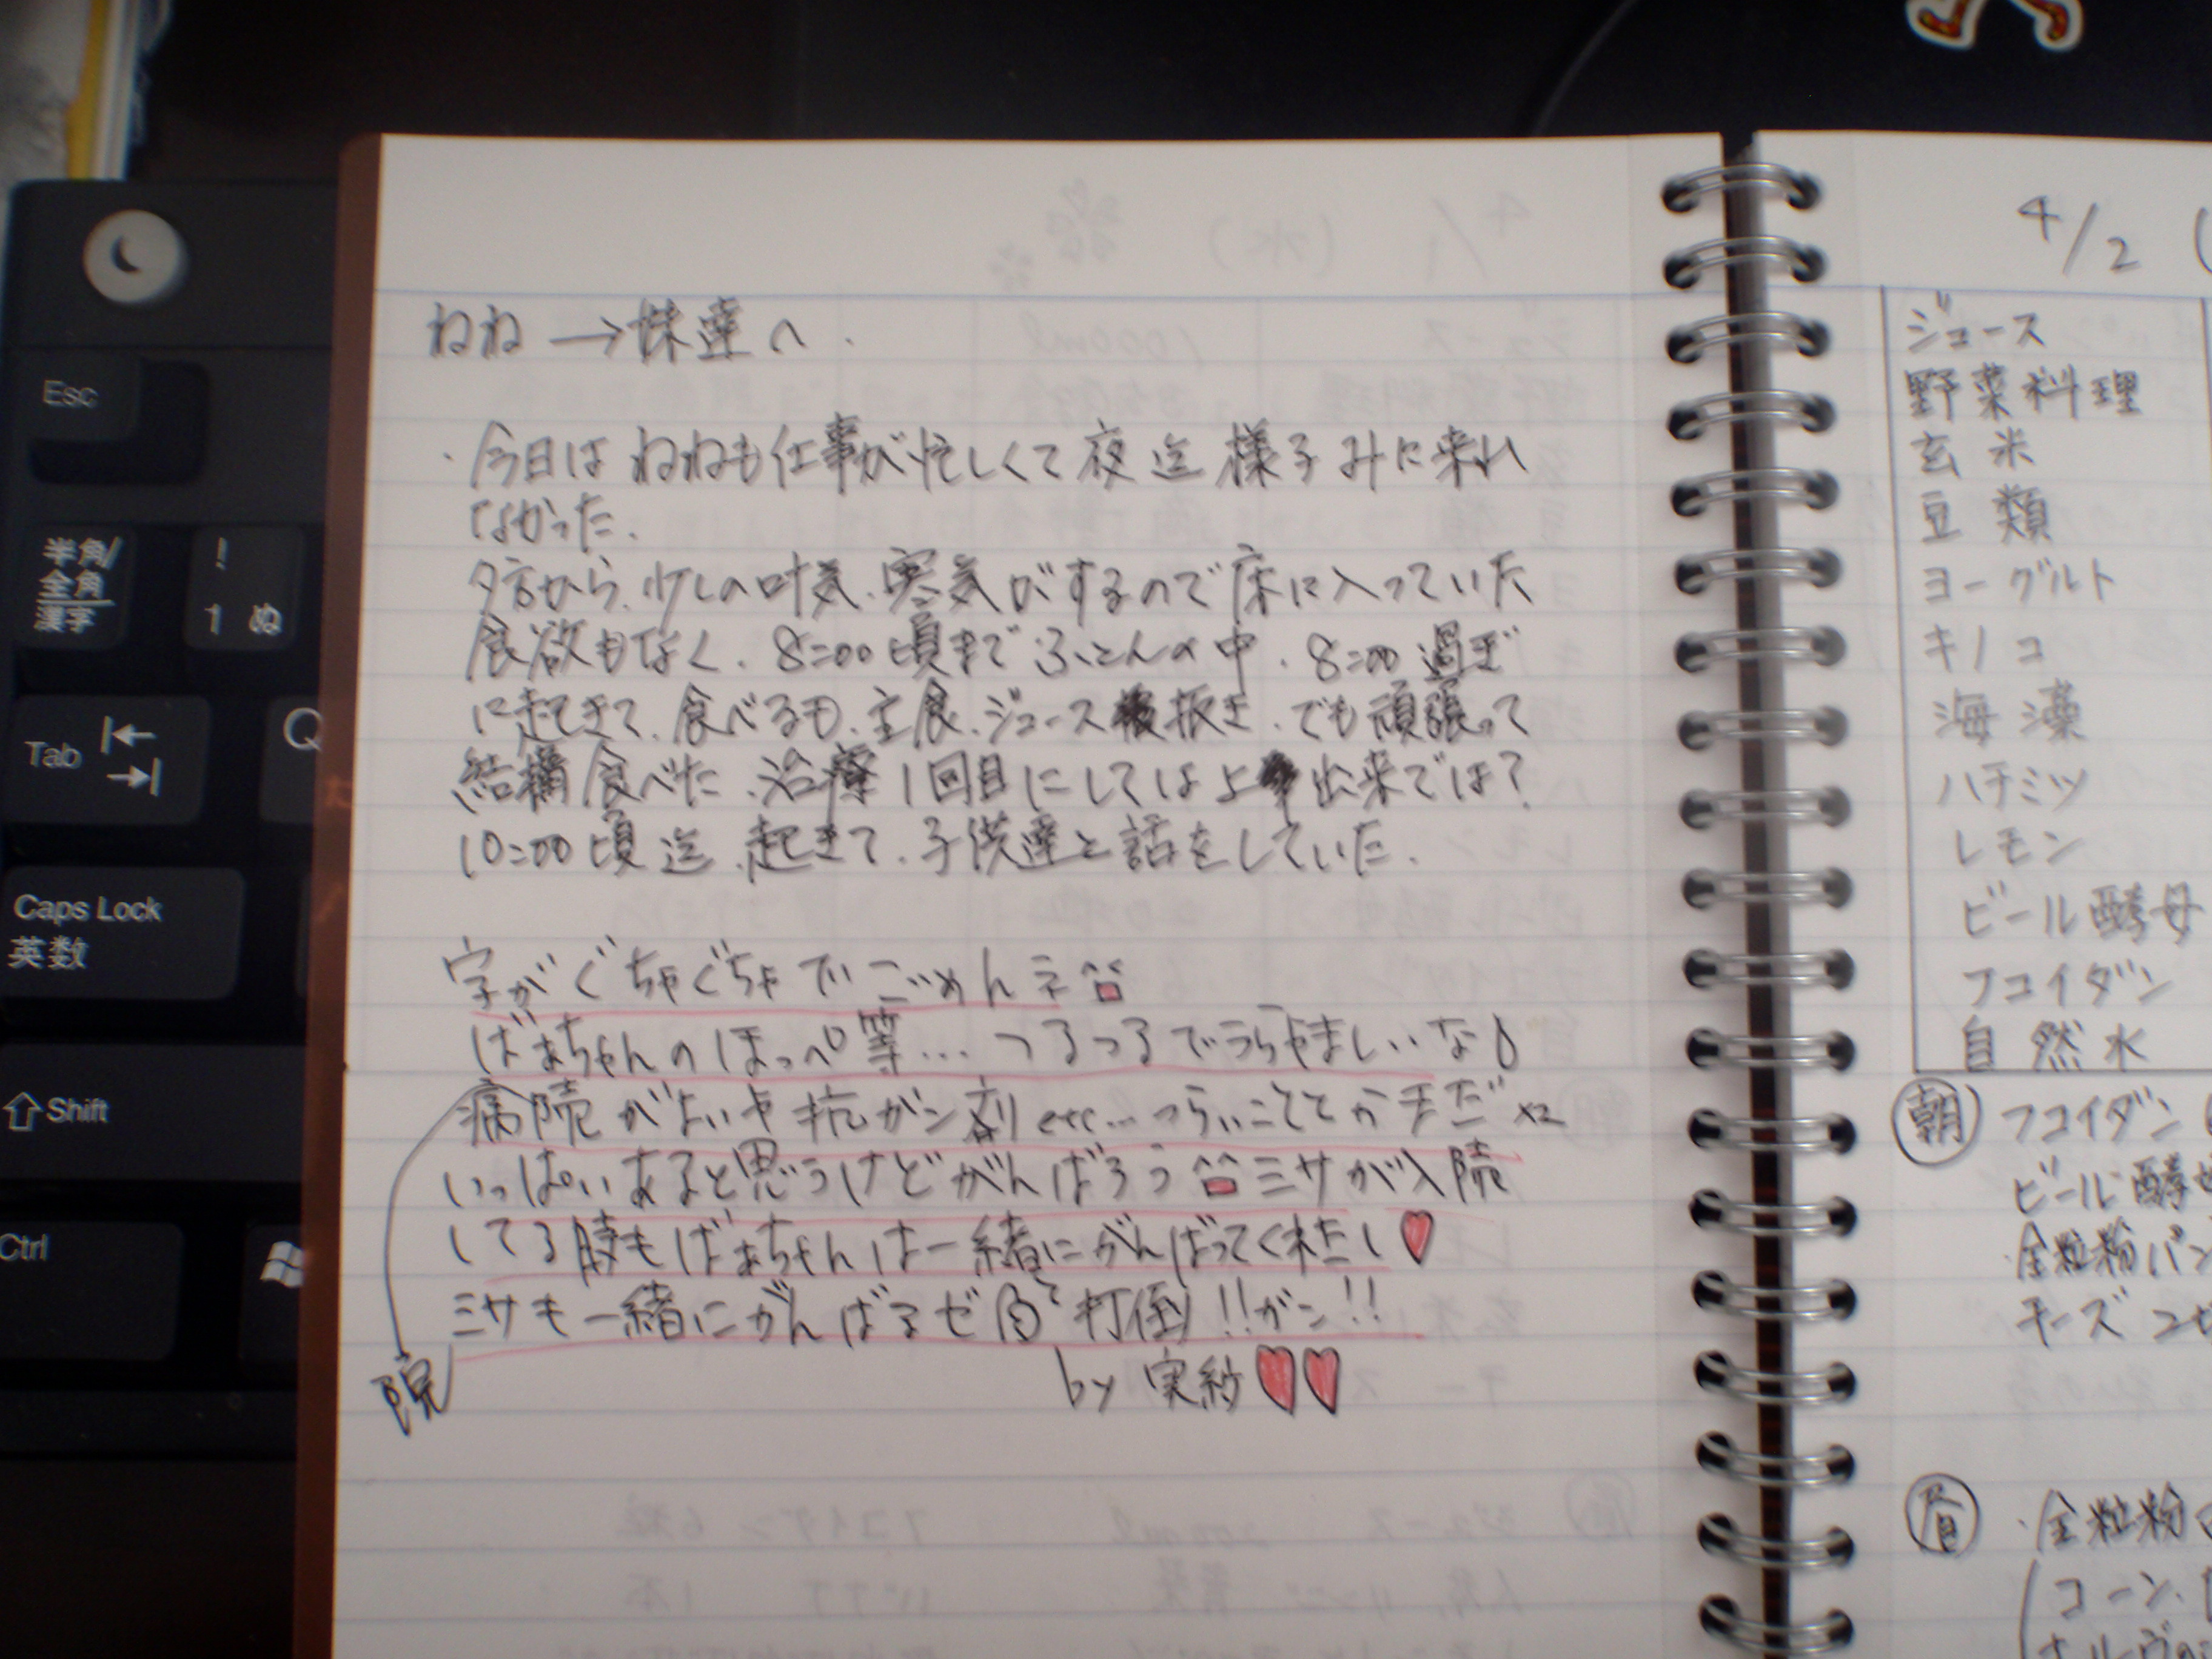 ねね → 妹達へ.
・今日は ねねも仕事が忙しくて夜迄様子みに来れ
なかった.
夕方から、少しの吐気、寒気がするので床に入っていた
食欲もなく、8:00頃まで ふとんの中. 8:00過ぎ
に起きて、食べるも、主食、ジュース抜き、でも頑張って
結構食べた、治療1回目にしては上出来では?
10:00頃迄、起きて、子供達と話をしていた.
字がぐちゃぐちゃでごめんネ
ばぁちゃんのほっぺ等…つるつるでうらやましいな
病院がよいや抗ガン剤etc…つらいこととかまだ××
いっぱいあると思うけどがんばろう ミサが入院
してる時もばぁちゃんは一緒にがんばってくれたし♥
ミサも一緒にがんばるゼ 打倒!!ガン!!
by 実紗♥♥
院
4/2 (
ジュース
野菜料理
玄米
豆類
ヨーグルト
キノコ
海藻
ハチミツ
レモン
ビール酵母
フコイダン
自然水
朝 フコイダン
ビール酵母
全粒粉パン
チーズ
昼 ・全粒粉
(コーン、
Esc
半角/
全角
漢字
!
1 ぬ
Tab
Q
Caps Lock
英数
Shift
Ctrl